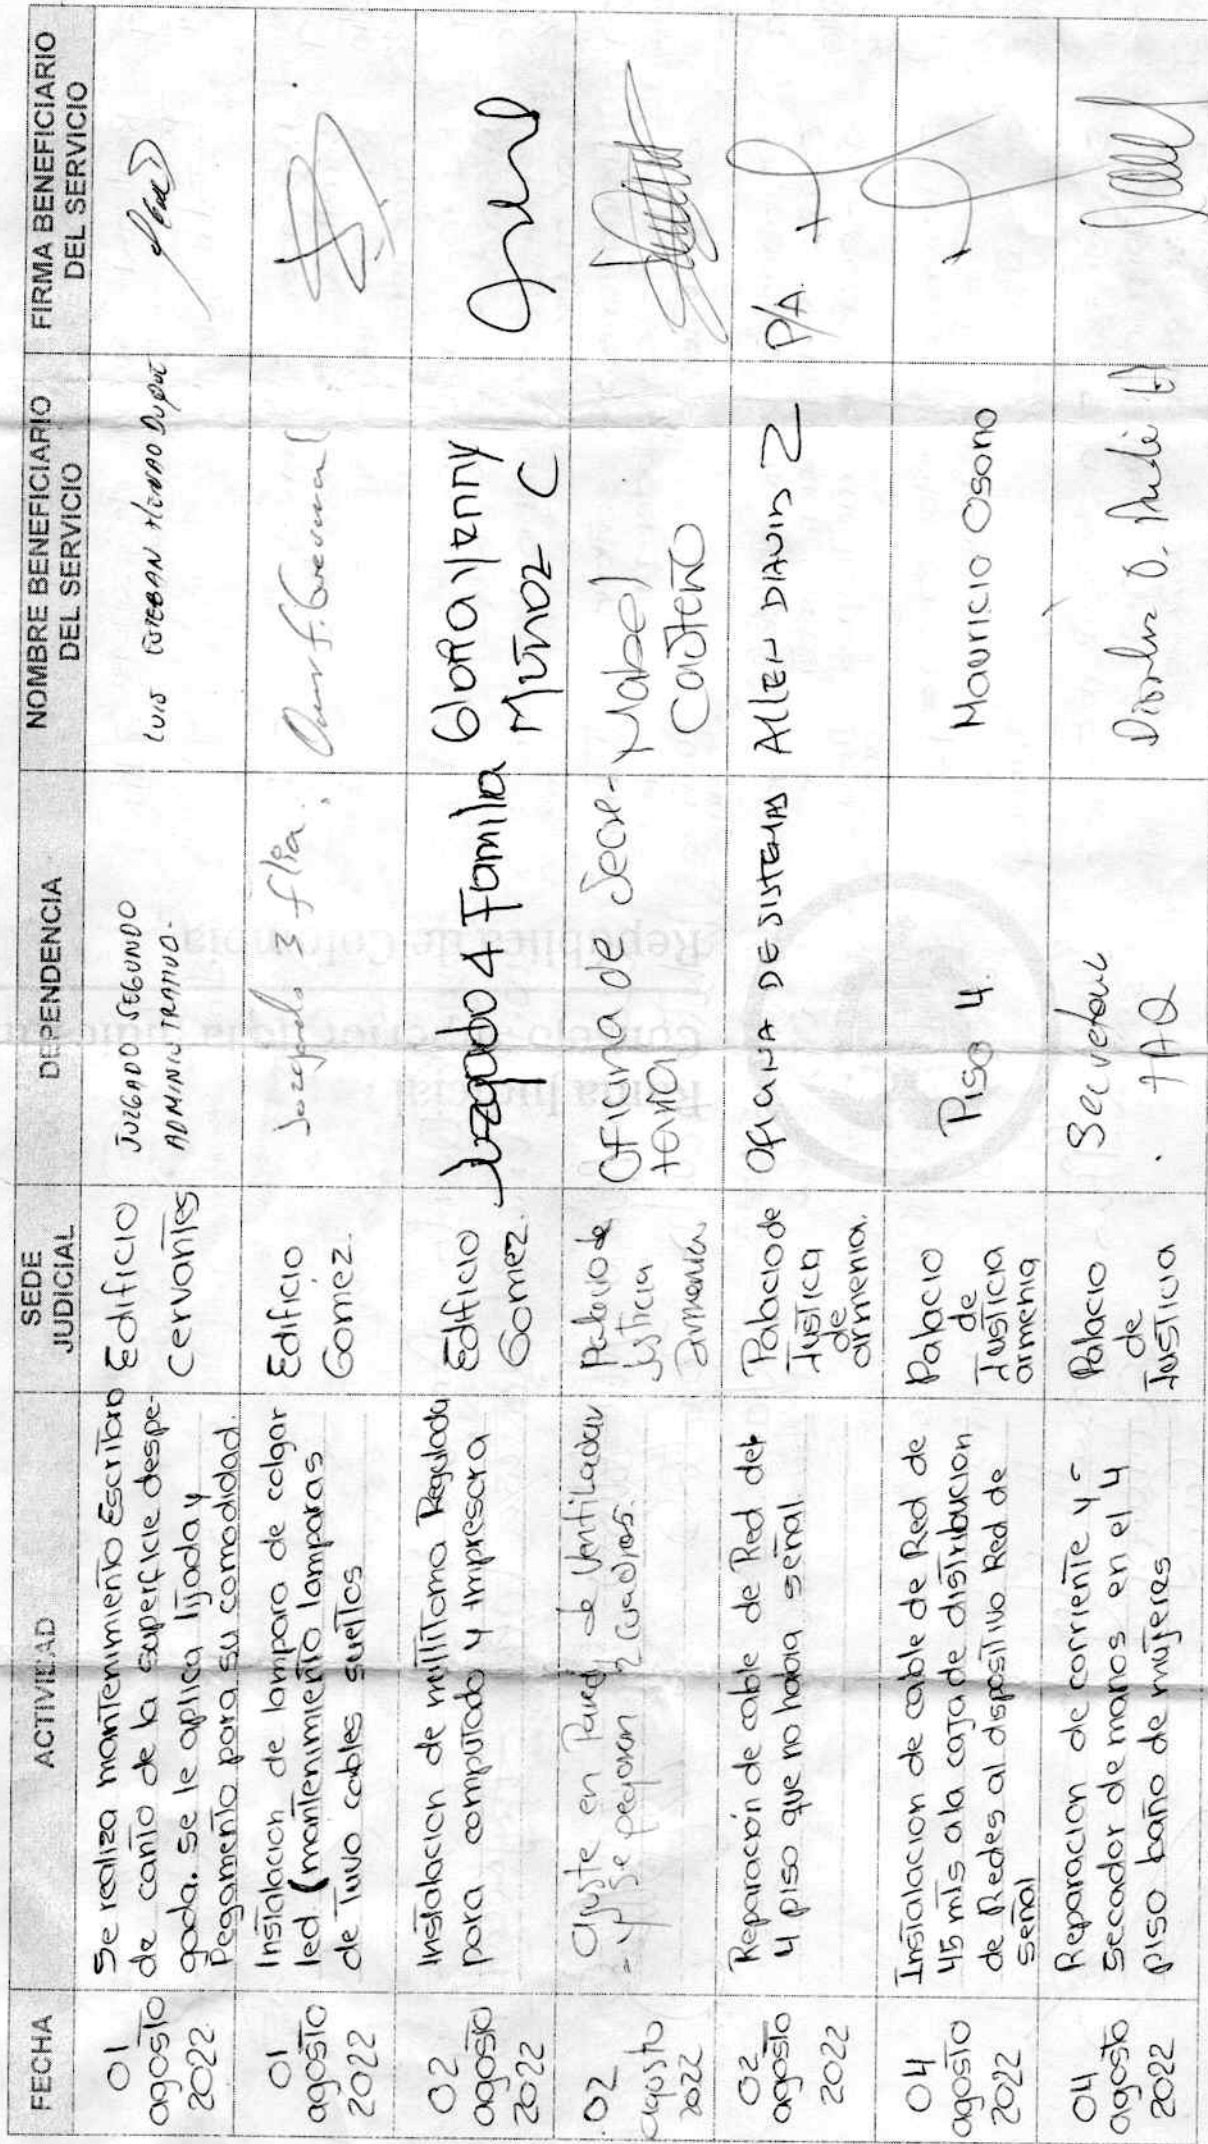 FECHA
ACTIVIDAD
SEDE
JUDICIAL
DEPENDENCIA
NOMBRE BENEFICIARIO
DEL SERVICIO
FIRMA BENEFICIARIO
DEL SERVICIO
01
agosto
2022
Se realiza mantenimiento Escritorio
de canto de la superficie despe-
gada. se le aplica lijada y
Pegamento para su comodidad.
Edificio
Cervantes
JUZGADO SEGUNDO
ADMINISTRATIVO.
LUIS ESTEBAN HENAO
01
agosto
2022
Instalacion de lampara de colgar
led (mantenimiento lamparas
de tuvo cables sueltos
Edificio
Gomez.
Juzgado 3 flia.
02
agosto
2022
Instalacion de multitoma Regulada
para computado y impresora
Edificio
Gomez.
Juzgado 4 Familia
Gloria Yenny
Muñoz C
02
agosto
2022
Ajuste en Pared de Ventilador
- y se pegaron 2 cuadros.
Palacio de
Justicia
Armenia
Oficina de Secre-
taria
Mabel
Casteño
02
agosto
2022
Reparación de cable de Red del
4 piso que no habia señal.
Palacio de
Justica
de
armenia.
OFICINA DE SISTEMAS
ALLEN DIAVID Z
P/A.
04
agosto
2022
Instalacion de cable de Red de
45 mts a la caja de distribucion
de Redes al dispositivo Red de
señal
Palacio
de
Justicia
armenia
Piso 4.
Mauricio Osorio
04
agosto
2022
Reparacion de corriente y -
secador de manos en el 4
piso baño de mujeres
Palacio
de
Justicia
Secretaria
. TAQ